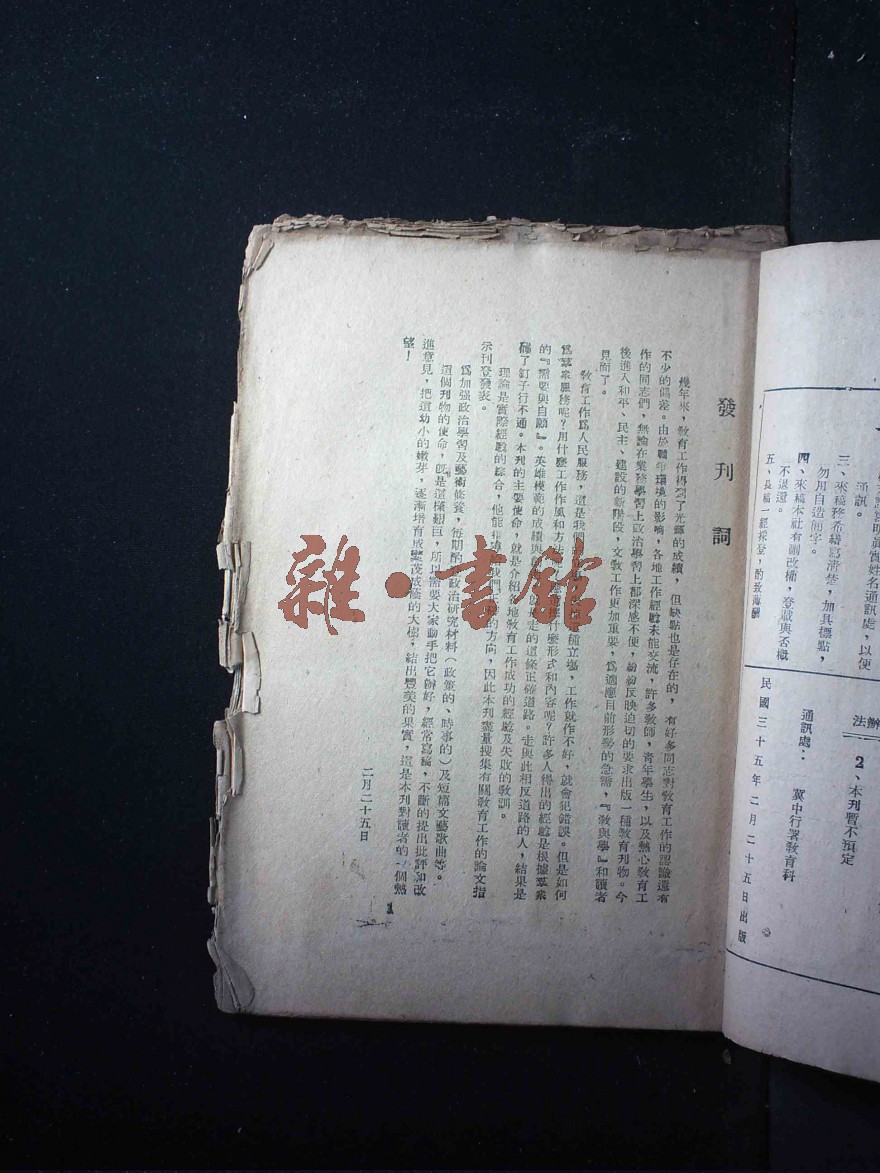 通訊。
三、來稿務希繕寫清楚，加具標點，
勿用自造簡字。
四、來稿本社有刪改權，登載與否概
不退還。
五、長稿一經採登，酌致薄酬
辦法
2、本刊暫不預定
通訊處： 冀中行署教育科
民國三十五年二月二十五日出版
發刊詞
幾年來，教育工作得到了光輝的成績，但缺點也是存在的，有好多同志對教育工作的認識還有
不少的偏差。由於戰爭環境的影响，各地工作經驗未能交流，許多教師，青年學生，以及熱心教育工
作的同志們，無論在業務學習上政治學習上都深感不便，紛紛反映迫切的要求出版一種教育刊物。今
後進入和平、民主、建設的新階段，文教工作更加重要，爲適應目前形勢的急需，『教與學』和讀者
見面了。
教育工作爲人民服務，這是我們的 立塲，工作就作不好，就會犯錯誤。但是如何
爲羣衆服務呢？用什麽工作作風和方 什麽形式和內容呢？許多人得出的經驗是根據羣衆
的『需要與自願』。英雄模範的成績與 定的這條正確道路。走與此相反道路的人，結果是
碰了釘子行不通。本刊的主要使命，就是介紹各地敎育工作成功的經驗及失敗的敎訓。
理論是實際經驗的綜合，他能指導我們 的方向，因此本刊盡量搜集有關敎育工作的論文指
示刊登發表。
爲加强政治學習及藝術修養，每期酌 政治硏究材料（政策的、時事的）及短篇文藝歌曲等。
這個刊物的使命，旣是這樣艱巨，所以需要大家動手把它辦好，經常寫稿，不斷的提出批評和改
進意見，把這幼小的嫩芽，逐漸培育成繁茂成蔭的大樹，結出豐美的果實，這是本刊對讀者的一個熱
望！
二月二十五日
1
雜·書館